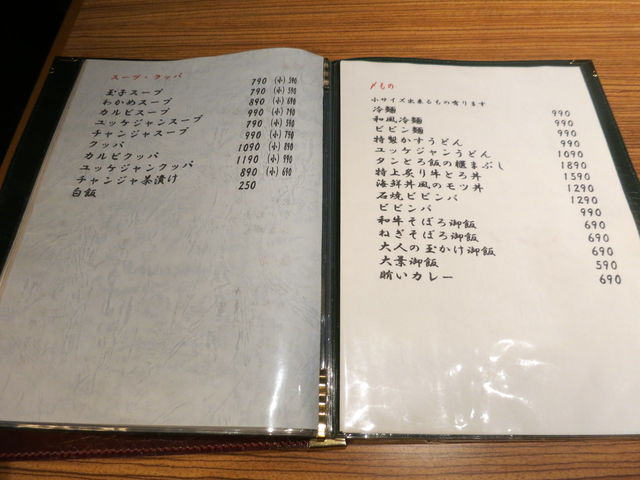 スープ・クッパ
玉子スープ 790 (小) 590
わかめスープ 790 (小) 590
カルビスープ 890 (小) 690
ユッケジャンスープ 990 (小) 790
チャンジャスープ 790 (小) 590
クッパ 990 (小) 790
カルビクッパ 1090 (小) 890
ユッケジャンクッパ 1190 (小) 990
チャンジャ茶漬け 890 (小) 690
白飯 250
〆もの
小サイズ出来るもの有ります
冷麺 990
和風冷麺 990
ビビン麺 990
特製かすうどん 990
ユッケジャンうどん 1090
タンとろ飯の櫃まぶし 1890
特上炙り牛とろ丼 1590
海鮮丼風のモツ丼 1290
石焼ビビンバ 1290
ビビンバ 990
和牛そぼろ御飯 690
ねぎそぼろ御飯 590
大人の玉かけ御飯 690
大葉御飯 590
賄いカレー 690